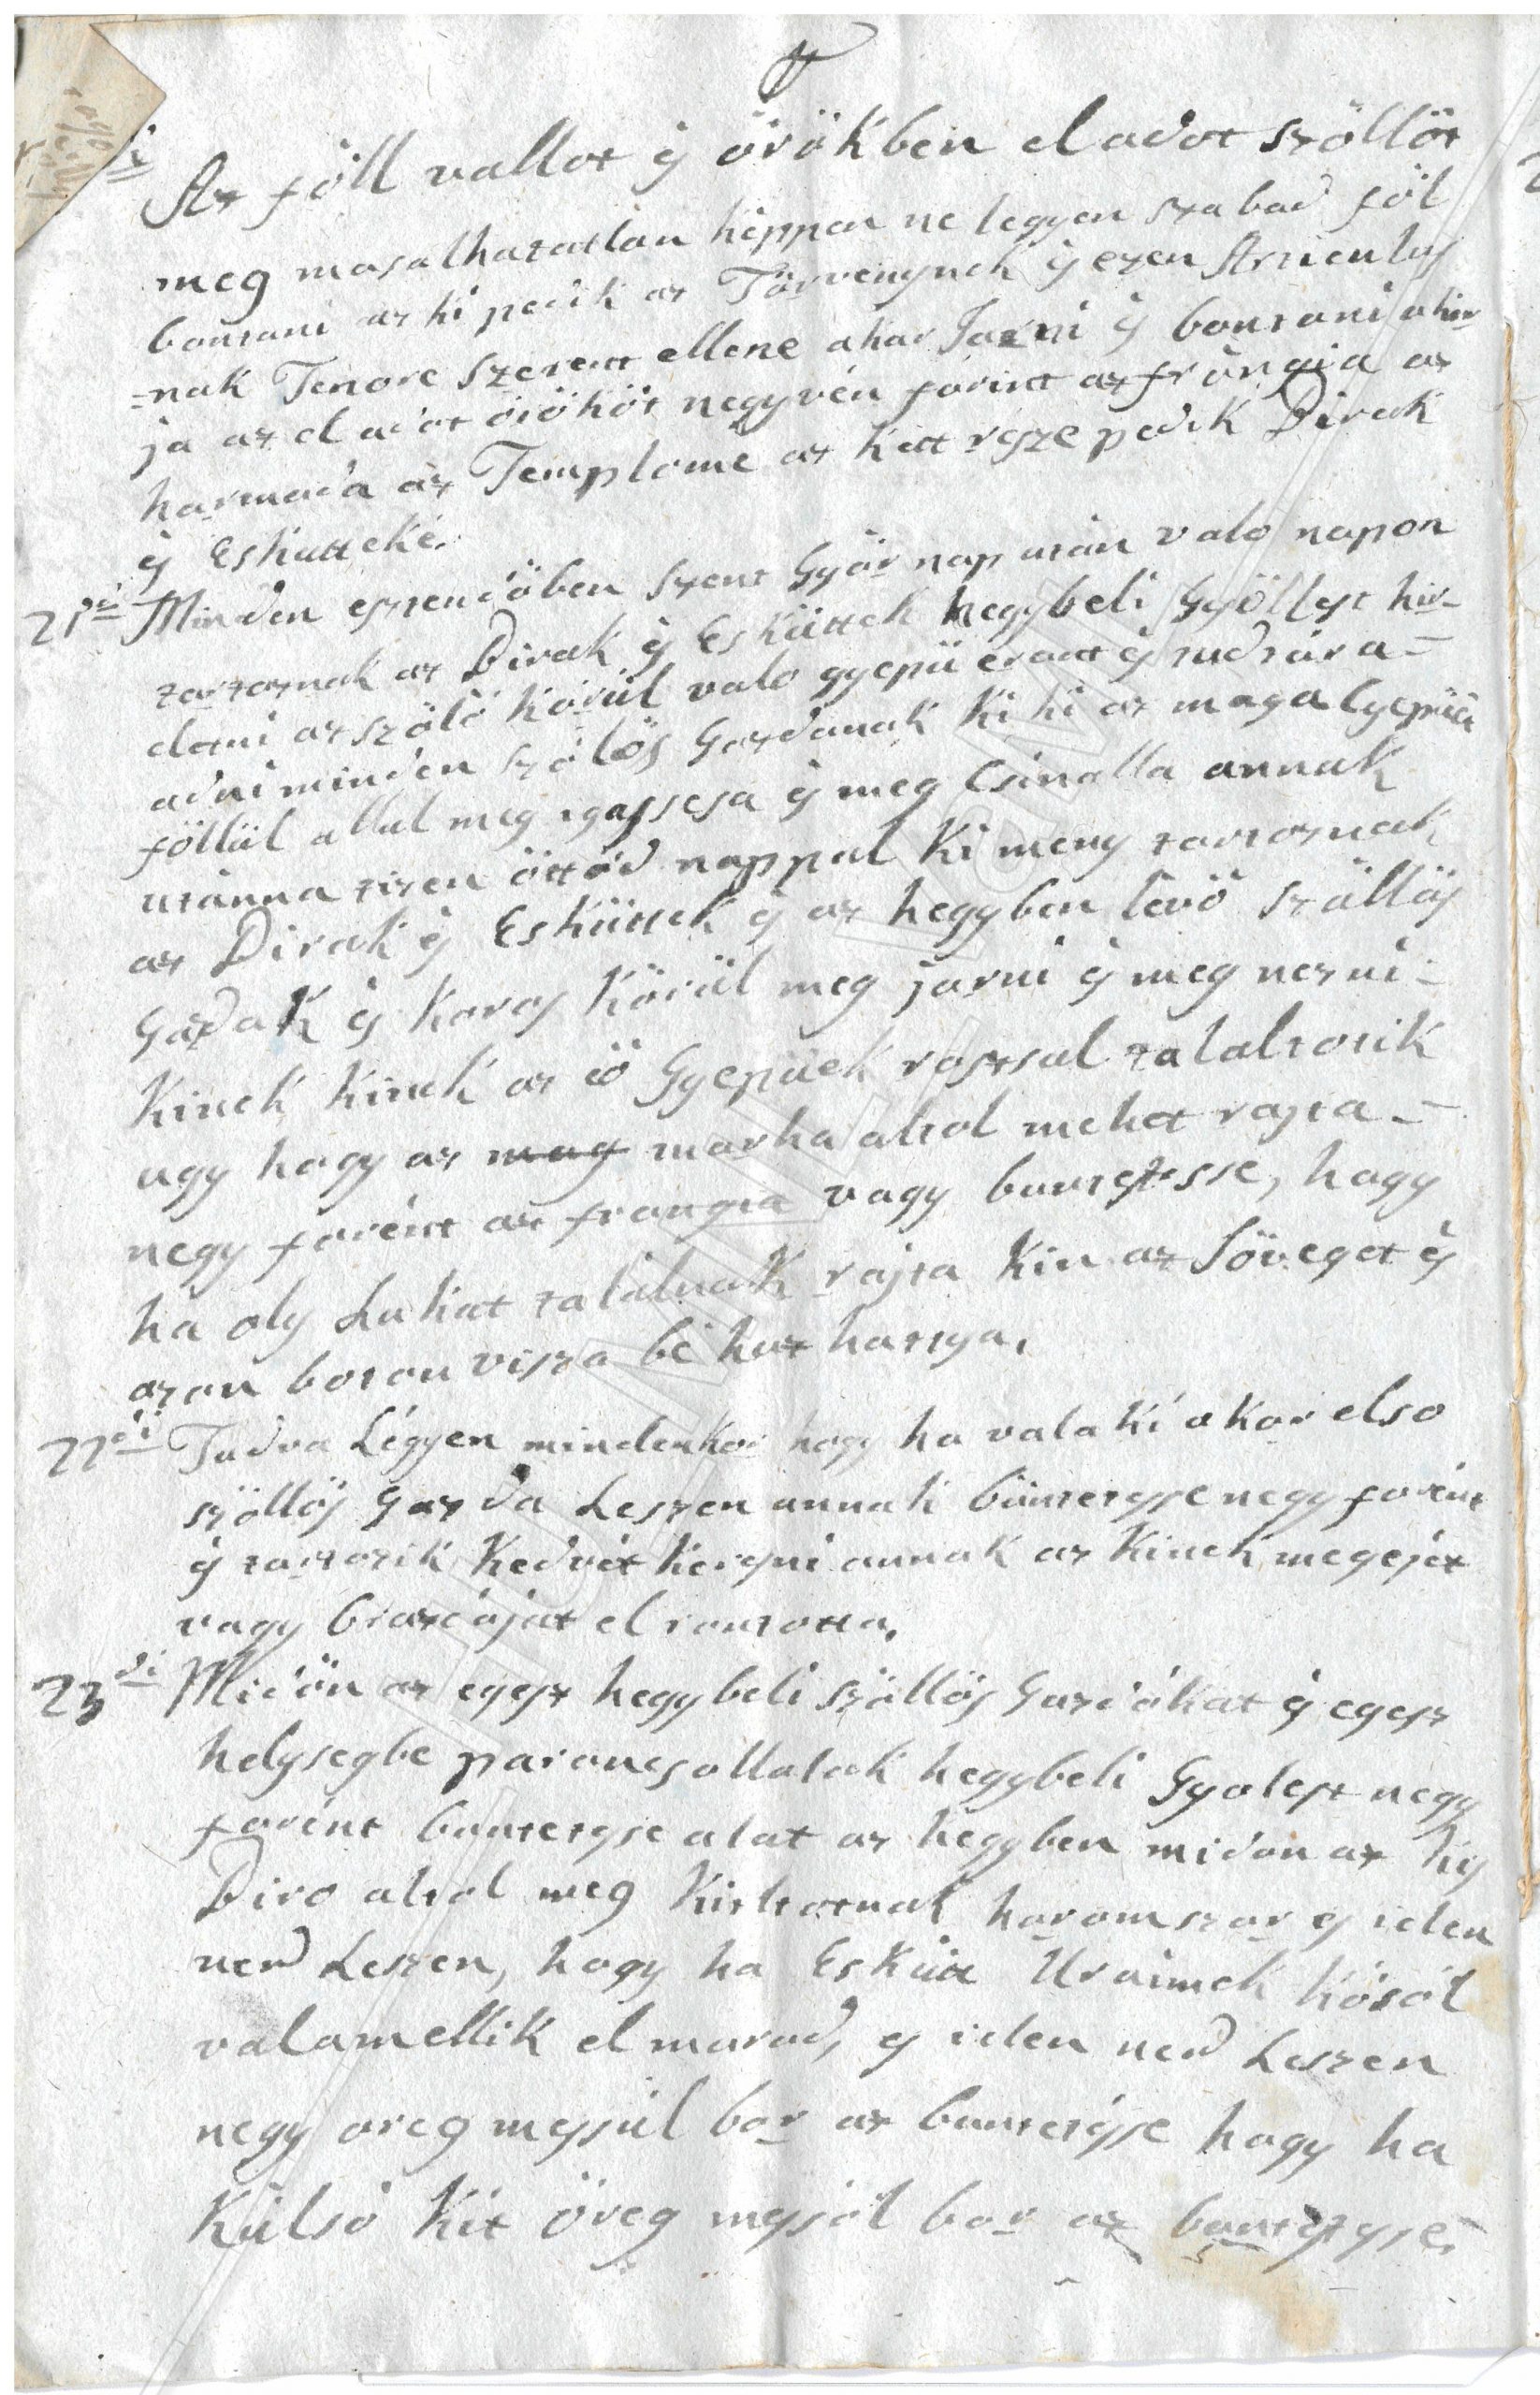 Az föll vallot és örökben el adot szöllöt
meg masalhatatlan képpen ne legyen szabad föl
bontani az ki pedik az Törvenynek és ezen Articulus
=nak Tenore szerent ellene akar Jarni és bontani akar
ja az el adot örököt negyven forint az frangia az
harmada az Templomé az kett része pedik Birak
és Eskutteké.
21di Minden esztendöben szent Györ nap után valo napon
tartoznak az Birak és Esküttek hegybeli Gyöllest hir-
detni az szölö körül valo gyepü eraut és tudtára-
adni minden szölös Gazdanak ki ki az maga Gyepüit
föllül allul meg igassesa és meg Csinalla annak
utánna tizen öttöd nappal Ki meny tartoznak
az Birak és Esküttek és az hegyben levö szöllös
Gazdak és Karos Körül meg jarni és meg nezni-
Kinek Kinek az ö Gyepüek rosszul talaltotik
ugy hogy az mag marha altol mehet rajta-
negy forént az frangia vagy buntetesse, hogy
ha oly Lukat talalnak rajta Kin az Söveget és
azon boton visza bé huz hattya.
22di Tudva Légyen mindenkor hogy ha valaki akar elso
szöllös Gazda Leszen annak büntetesse negy forént
és tartozik Kedvét keresni annak az Kinek megejét
vagy Brazdáját el rontotta.
23di Midön az egesz hegybeli szöllös Gazdákat és egesz
helysegbe parancsollatok hegybeli Gyolest negy
forént buntetesse alat az hegyben midon az kis
Biro altol meg Kirlatnak haromszor és iden
ned Leszen, hogy ha Esküt Uraimek közöl
valamellik el marad, és iden ned Leszen
negy oreg messül bor az buntetésse hogy ha
Külsö Két öreg messöl bor az buntetesse.